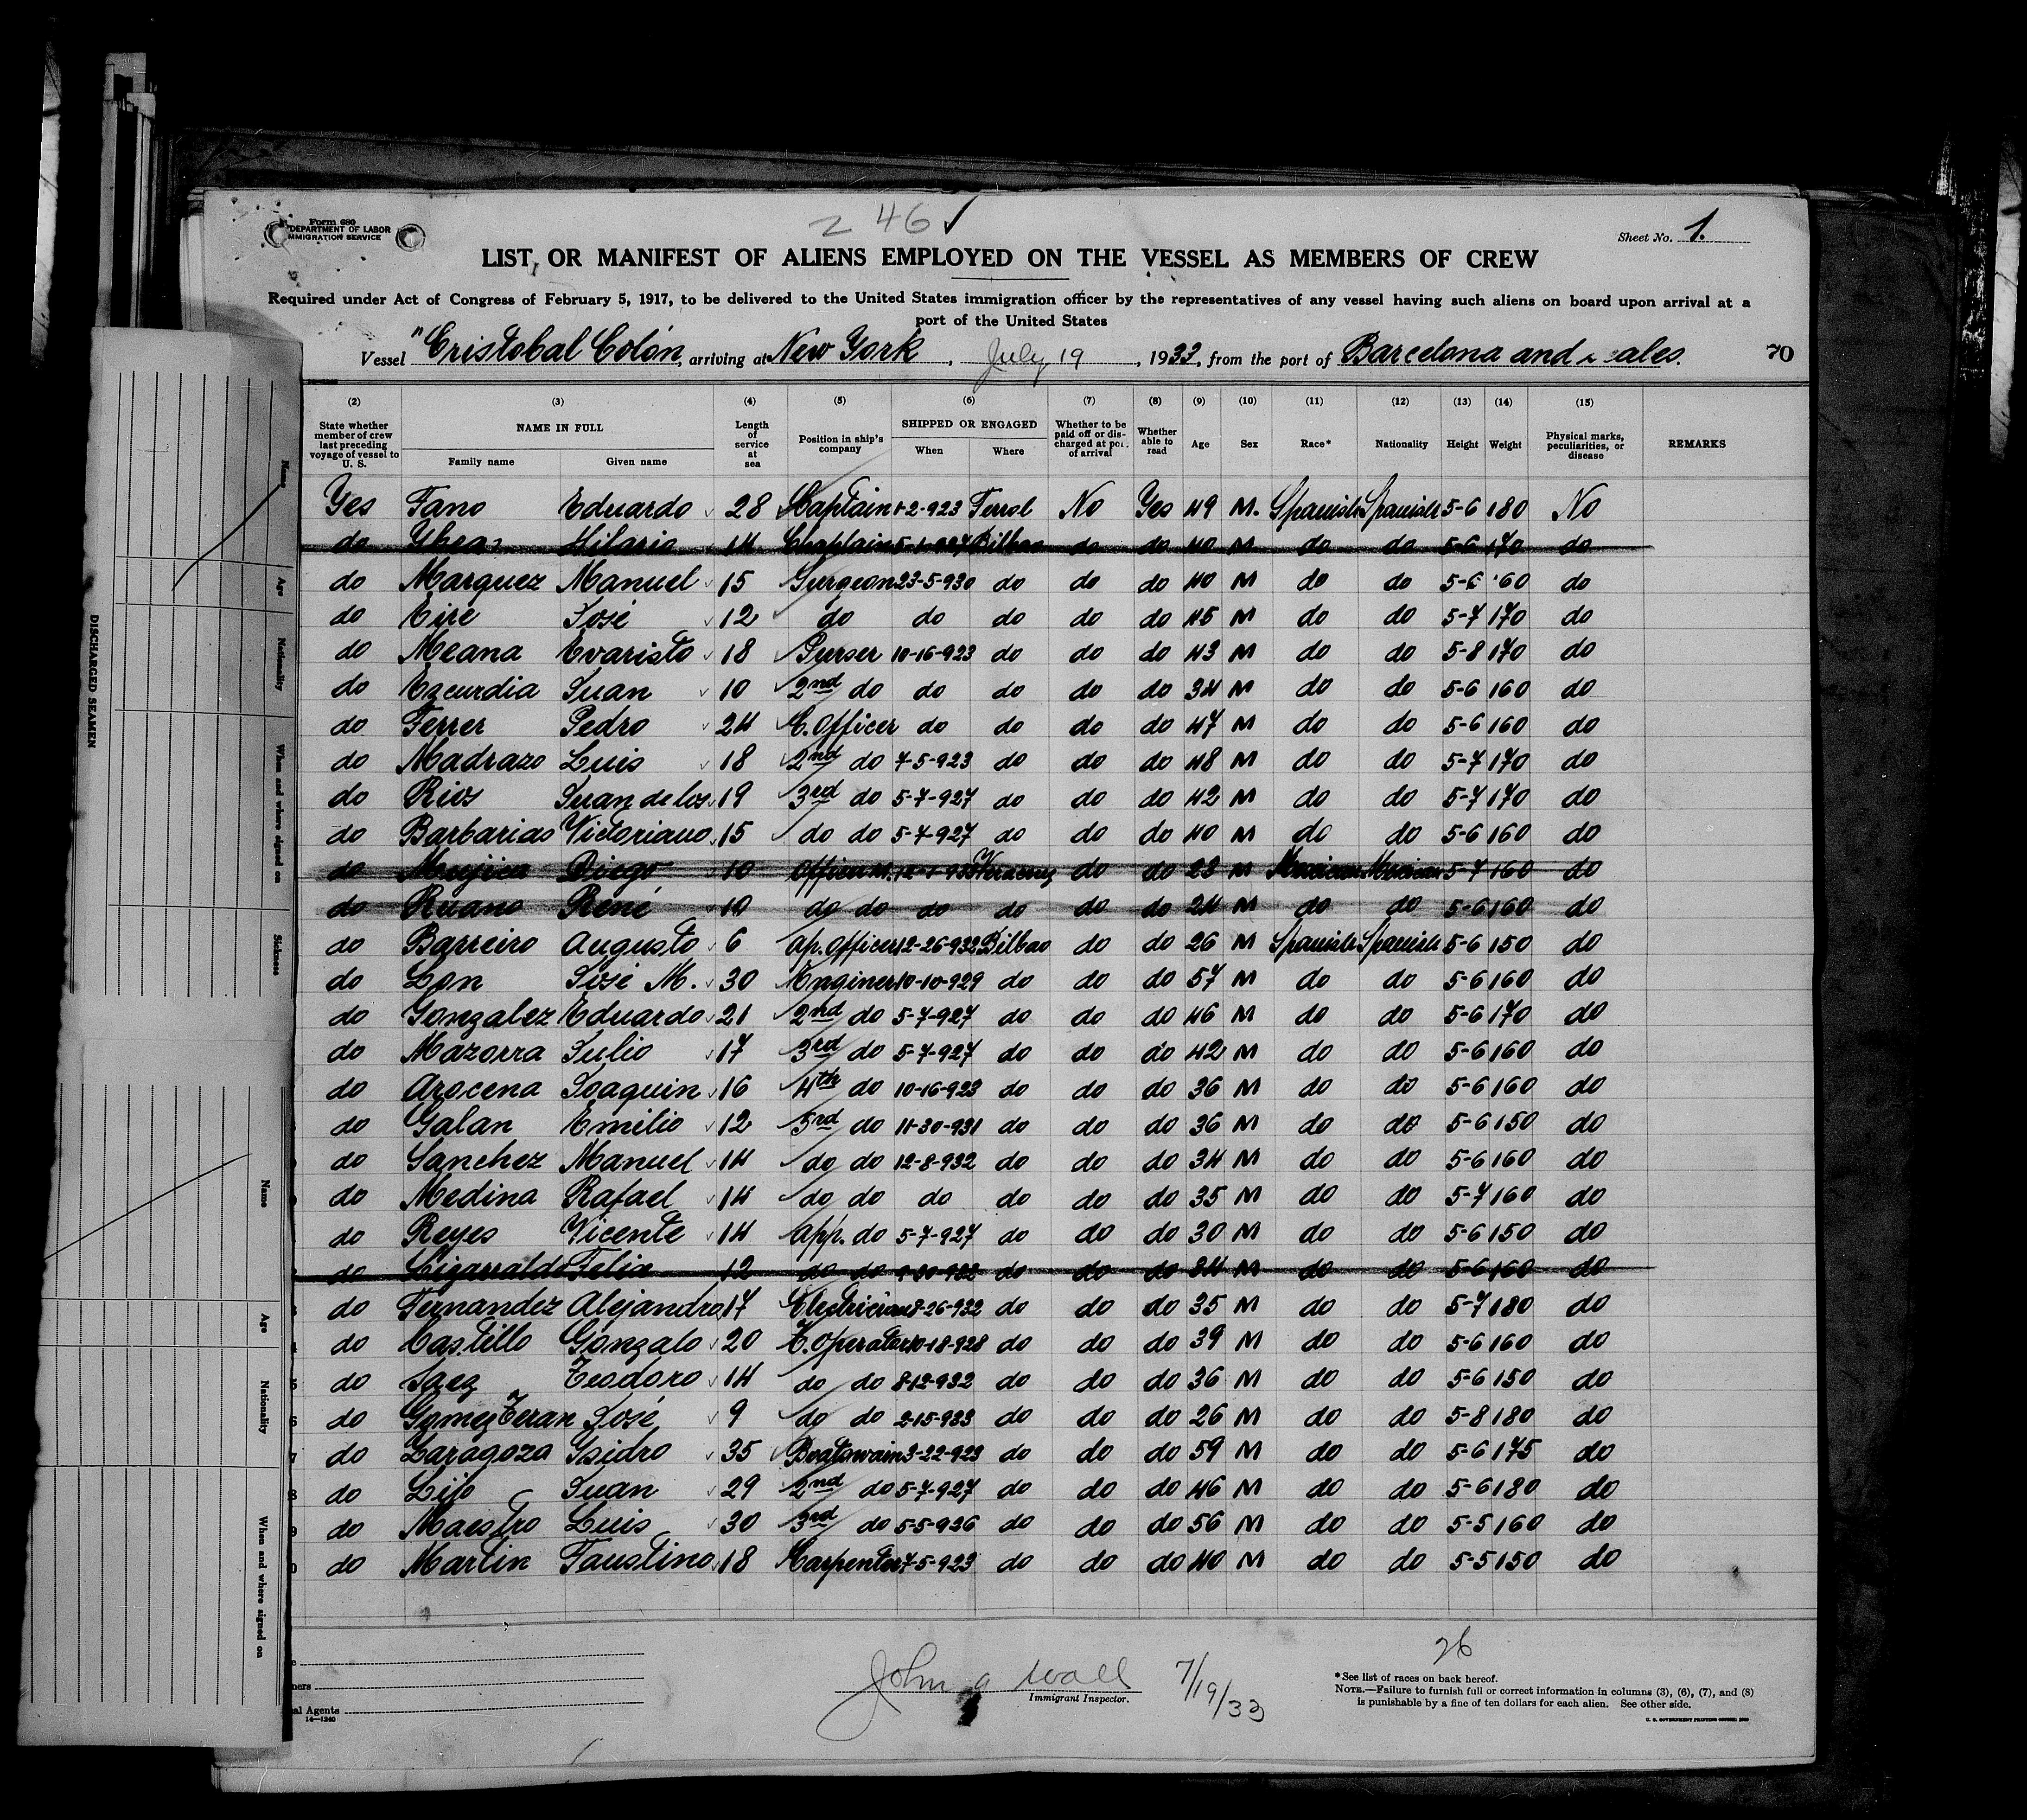 2 46 ✓
Form 680
DEPARTMENT OF LABOR
IMMIGRATION SERVICE
Sheet No. 1.
LIST OR MANIFEST OF ALIENS EMPLOYED ON THE VESSEL AS MEMBERS OF CREW
Required under Act of Congress of February 5, 1917, to be delivered to the United States immigration officer by the representatives of any vessel having such aliens on board upon arrival at a
port of the United States
Vessel "Cristobal Colón, arriving at New York, July 19, 1933, from the port of Barcelona and
70
(2) (3) (4) (5) (6) (7) (8) (9) (10) (11) (12) (13) (14) (15)
State whether member of crew last preceding voyage of vessel to U. S.
NAME IN FULL
Family name
Given name
Length of service at sea
Position in ship's company
SHIPPED OR ENGAGED
When
Where
Whether to be paid off or discharged at port of arrival
Whether able to read
Age
Sex
Race*
Nationality
Height
Weight
Physical marks, peculiarities, or disease
REMARKS
Yes Fano Eduardo 28 Captain 1-2-923 Ferrol No Yes 49 M. Spanish Spanish 5-6 180 No
do Hilario 14 Chaplain 5-1-927 Bilbao do do 40 M do do 5-6 170 do
do Marquez Manuel 15 Surgeon 23-5-930 do do do 40 M do do 5-6 160 do
do Eire José 12 do do do do do 45 M do do 5-7 170 do
do Meana Evaristo 18 Purser 10-16-923 do do do 43 M do do 5-8 170 do
do Ezcurdia Juan 10 2nd do do do do do 34 M do do 5-6 160 do
do Ferrer Pedro 24 C. Officer do do do do 47 M do do 5-6 160 do
do Madrazo Luis 18 2nd do 7-5-923 do do do 48 M do do 5-7 170 do
do Rios Juan de los 19 3rd do 5-7-927 do do do 42 M do do 5-7 170 do
do Barbarias Victoriano 15 do do 5-7-927 do do do 40 M do do 5-6 160 do
do Mujica Diego 10 Officer Veracruz do do 28 M Mexican Mexican 5-7 160 do
do Ruano René 10 do do do do do do 24 M do do 5-6 160 do
do Barreiro Augusto 6 Ap. Officer 12-26-932 Bilbao do do 26 M Spanish Spanish 5-6 150 do
do Lon José M. 30 Enginer 10-10-929 do do do 57 M do do 5-6 160 do
do Gonzalez Eduardo 21 2nd do 5-7-927 do do do 46 M do do 5-6 170 do
do Mazorra Julio 17 3rd do 5-7-927 do do do 42 M do do 5-6 160 do
do Arocena Joaquin 16 4th do 10-16-923 do do do 36 M do do 5-6 160 do
do Galan Emilio 12 5rd do 11-30-931 do do do 36 M do do 5-6 150 do
do Sanchez Manuel 14 do do 12-8-932 do do do 34 M do do 5-6 160 do
do Medina Rafael 14 do do do do do do 35 M do do 5-7 160 do
do Reyes Vicente 14 App. do 5-7-927 do do do 30 M do do 5-6 150 do
do Lizarralde Felix 12 do do 9-30-932 do do do 34 M do do 5-6 160 do
do Fernandez Alejandro 17 Electrician 8-26-932 do do do 35 M do do 5-7 180 do
do Castillo Gonzalo 20 T. Operator 10-18-928 do do do 39 M do do 5-6 160 do
do Saez Teodoro 14 do do 8-12-932 do do do 36 M do do 5-6 150 do
do Gomez Teran José 9 do do 2-15-933 do do do 26 M do do 5-8 180 do
do Zaragoza Isidro 35 Boatswain 3-22-923 do do do 59 M do do 5-6 175 do
do Lijo Juan 29 2nd do 5-7-927 do do do 46 M do do 5-6 180 do
do Maestro Luis 30 3rd do 5-5-926 do do do 56 M do do 5-5 160 do
do Martin Faustino 18 Carpenter 7-5-923 do do do 40 M do do 5-5 150 do
26
John a Wall 7/19/33
Immigrant Inspector.
*See list of races on back hereof.
NOTE.—Failure to furnish full or correct information in columns (3), (6), (7), and (8)
is punishable by a fine of ten dollars for each alien. See other side.
U. S. GOVERNMENT PRINTING OFFICE
ners
al Agents
14—1240
DISCHARGED SEAMEN
Name
Age
Nationality
When and where signed on
Sickness
Name
Age
Nationality
When and where signed on